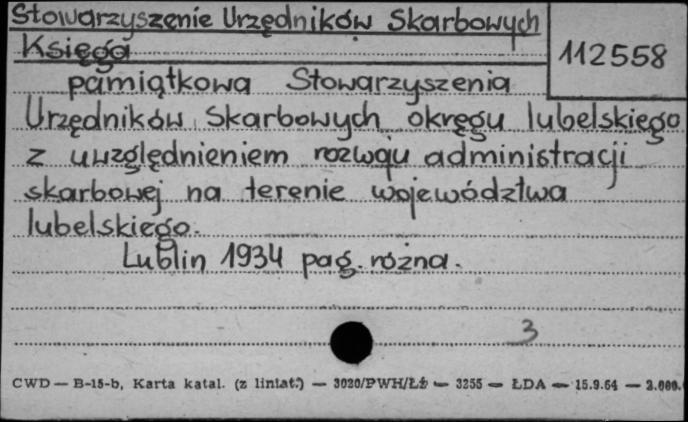 Stowarzyszenie Urzędników Skarbowych
Księga
112558
pamiątkowa Stowarzyszenia
Urzędników Skarbowych okręgu lubelskiego
z uwzględnieniem rozwoju administracji
skarbowej na terenie województwa
lubelskiego.
Lublin 1934 pag. różna.
3
CWD — B-15-b, Karta katal. (z liniat.) — 3020/PWH/Łż — 3255 — ŁDA — 15.9.64 —